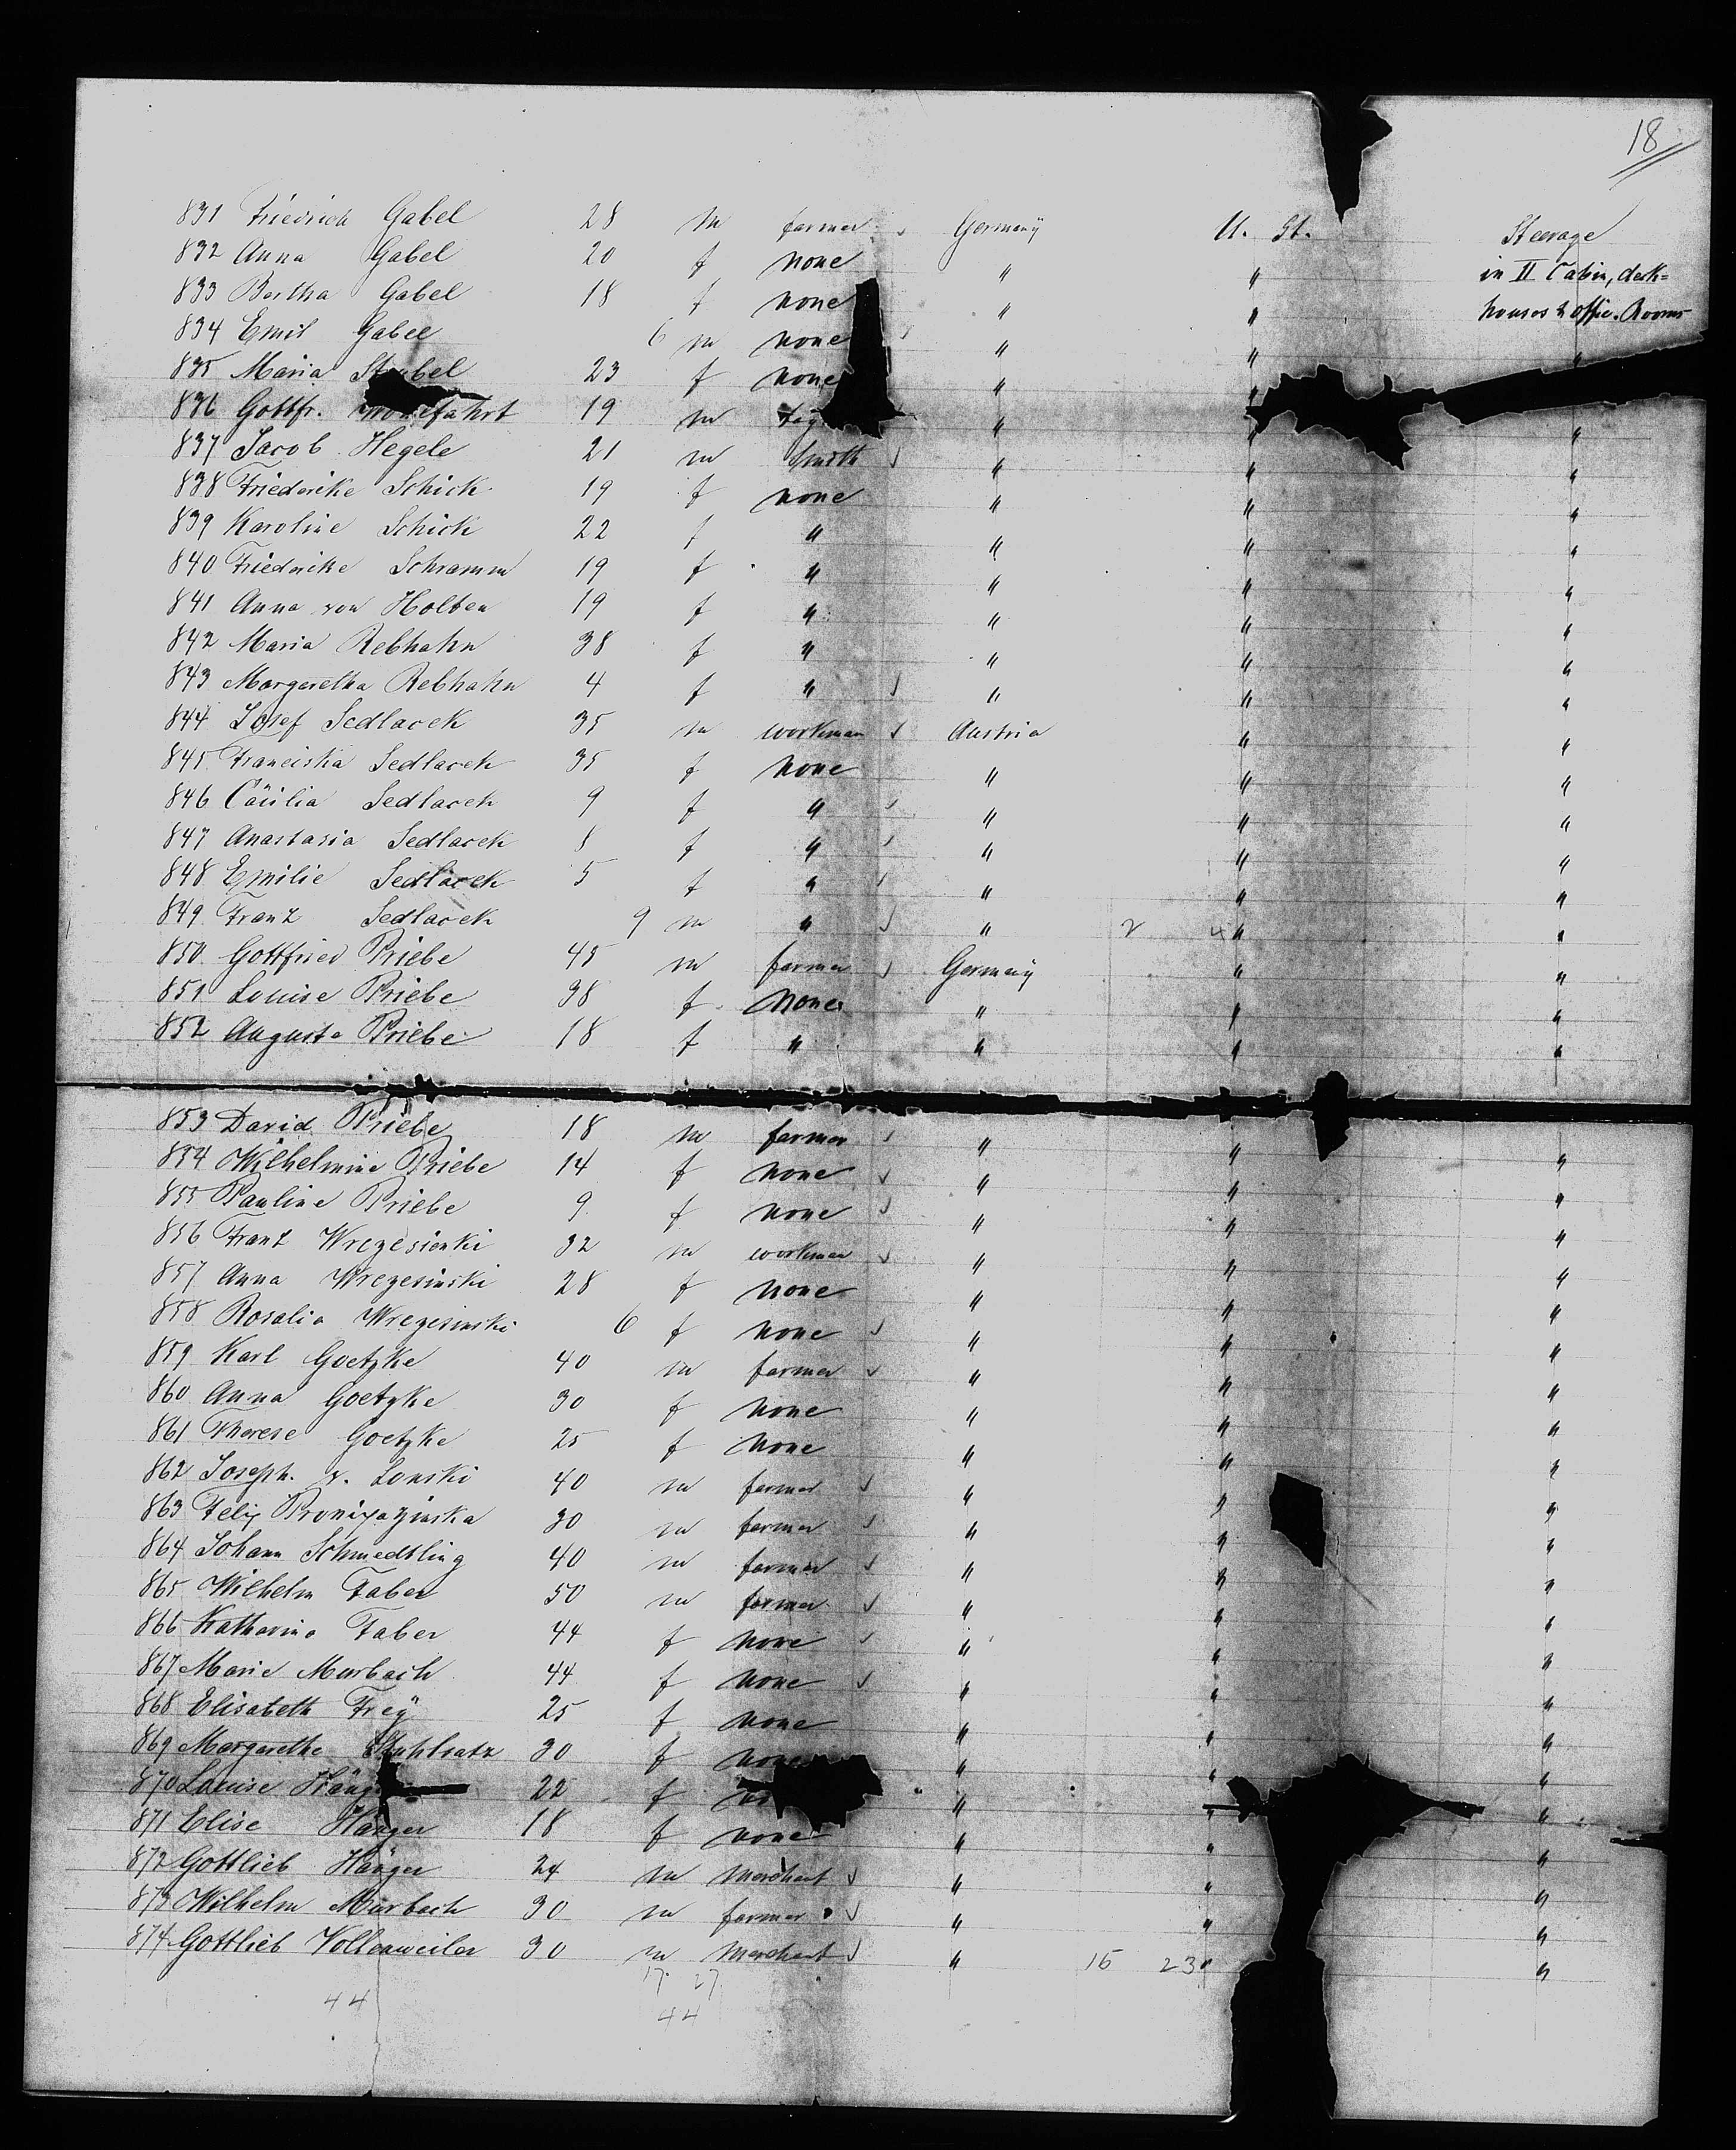 18
831 Friedrich Gabel 28 m farmer Germany U. St. Steerage
832 Anna Gabel 20 f none " " in II Cabin, deck=
833 Bertha Gabel 18 f none " " houses & offic. Rooms
834 Emil Gabel 6 m none " " "
835 Maria 23 f none " "
836 Gottfr. 19 m " " "
837 Jacob Hegele 21 m Smith " " "
838 Friederike Schick 19 f none " " "
839 Karoline Schick 22 f " " " "
840 Friederike Schramm 19 f " " " "
841 Anna von Holten 19 f " " " "
842 Maria Rebhahn 38 f " " " "
843 Margaretha Rebhahn 4 f " " " "
844 Josef Sedlacek 35 m workman Austria " "
845 Franciska Sedlacek 35 f none " " "
846 Cäcilia Sedlacek 9 f " " " "
847 Anastasia Sedlacek 8 f " " " "
848 Emilie Sedlacek 5 f " " " "
849 Franz Sedlacek 9 m " " 2 4 " "
850 Gottfried Priebe 45 m farmer Germany " "
851 Louise Priebe 38 f none " " "
852 Auguste Priebe 18 f " " " "
853 David Priebe 18 m farmer " " "
854 Wilhelmine Priebe 14 f none " " "
855 Pauline Priebe 9 f none " " "
856 Franz Wrezesienki 32 m workman " " "
857 Anna Wrezesinski 28 f none " " "
858 Rosalia Wrezesinski 6 f none " " "
859 Karl Goetzke 40 m farmer " " "
860 Anna Goetzke 30 f none " " "
861 Therese Goetzke 25 f none " " "
862 Joseph. v. Lonski 40 m farmer " " "
863 Felix 30 m farmer " " "
864 Johann Schmedtling 40 m farmer " " "
865 Wilhelm Faber 50 m farmer " " "
866 Katharina Faber 44 f none " " "
867 Marie Murbach 44 f none " " "
868 Elisabeth Freÿ 25 f none " " "
869 Margarethe 30 f none " " "
870 Louise 22 f " " "
871 Elise Hänger 18 f none " " "
872 Gottlieb Hänger 24 m Merchant " " "
873 Wilhelm Murbach 30 m farmer " " "
874 Gottlieb Vollenweiler 30 m Merchant " 15 23 " "
17 27
44 44